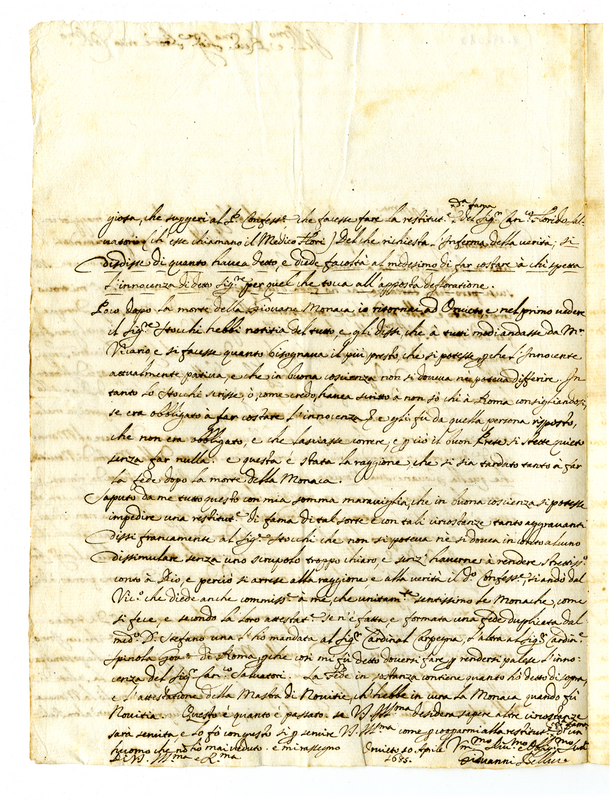 giosa, che suggerì al P. Confess.re che facesse fare la restitut.e di fama del Sig.r Can.co Florido Sal-
vatori (ch'esse chiamano il Medico Flori) del che richiesta l'Inferma della verità, si
disdisse di quanto havea detto, e diede facoltà al medesimo di far costare à chi spetta
l'innocenza di detto Sig.re per quel che toca all'apposta defloratione.
Poco dopo la morte della Giovane Monaca io ritornai ad Orvieto e nel primo vedere
il Sig.re Stocchi hebbi notitia del tutto, e gli dissi che à tutti mediandasse da M.r
Vicario e si facesse quanto bisognava il più presto che si potesse, perche l'Innocente
attualmente pativa, e che in buona coscienza non si doveva ne poteva differire. In
tanto lo Stocchi scrisse, ò, come credo, havea scritto à non sò chi à Roma consigliandosi,
se era obbligato à far costare l'innocenza & e gli fù da quella persona risposto,
che non era obbligato, e che lasciasse correre, e perciò il buon Prete si stette quieto
senza far nulla: e questa è stata la raggione, che si sia tardato tanto à far
la fede dopo la morte della Monaca.
Saputo da me tutto questo con mia somma maraviglia, che in buona coscienza si potesse
impedire una restitut.e di fama di tal sorte e con tali circostanze tanto aggravanti
dissi francamente al Sig.r Stocchi che non si poteva ne si doveva in conto alcuno
dissimulare senza uno scrupolo troppo chiaro, e senz'haverne à rendere strettiss.o
conto à Dio, e perciò si arrese alla raggione e alla verità il d.o Confess.re, si andò dal
Vic.o che diede anche commiss.e à me, che unitam.te sentissimo le Monache, come
si fece, e secondo la loro attestat.e se n'è fatta e formata una fede duplicata dal
med.o D. Stefano una l'ho mandata al Sig.r Cardinal Carpegna, e l'altra al Sig.r Cardin.e
Spinola Gov.re di Roma, perche così mi fù detto doversi fare per rendersi palese l'inno-
cenza del Sig.r Can.co Salvatori. La Fede in sostanza contiene quanto hò detto di sopra,
e l'attestatione della Mastra di Novitie, ch'hebbe in cura la Monaca quando fù
Novitia. Questo è quanto è passato, se V.S. Ill.ma desidera sapere altre circostanze
sarà servita e lo fò con questo sì per servire V.S. Ill.ma come per cooperarmi alla restitut.e di fama d'un
huomo che nò ho mai veduto. e mi rassegno
Di V.S. Ill.ma e R.ma
Orvieto 30. Aprile
1695.
Giovanni